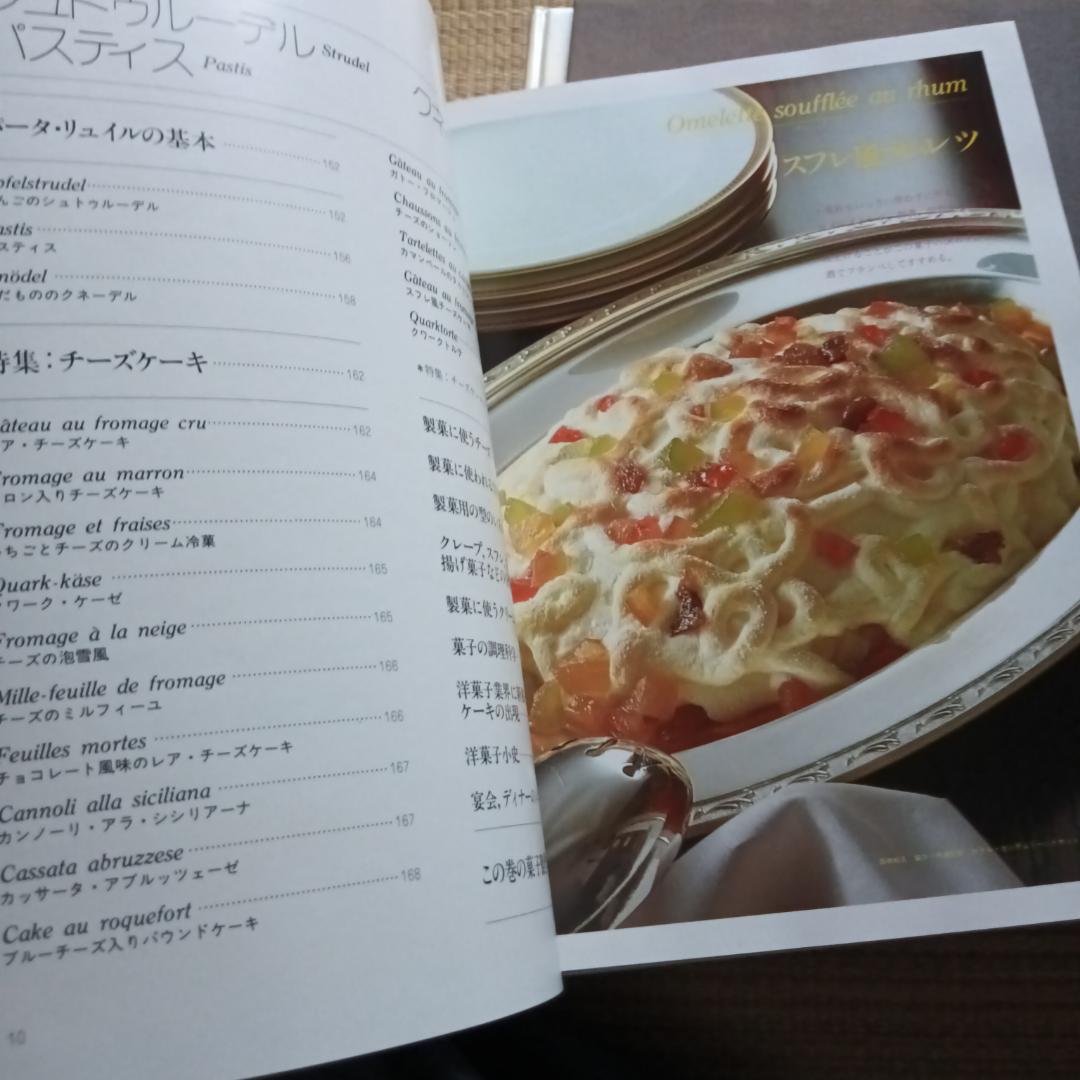 シュトゥルーデル Strudel
パスティス Pastis
ータ・リュイルの基本 152
pfelstrudel 152
んごのシュトゥルーデル
astis 156
スティス
nödel 158
だもののクネーデル
特集：チーズケーキ 162
âteau au fromage cru 162
ア・チーズケーキ
Fromage au marron 164
ロン入りチーズケーキ
Fromage et fraises 164
ちごとチーズのクリーム冷菓
Quark-käse 165
ワーク・ケーゼ
Fromage à la neige 165
チーズの泡雪風
Mille-feuille de fromage 166
チーズのミルフィーユ
Feuilles mortes 166
チョコレート風味のレア・チーズケーキ
Cannoli alla siciliana 167
カンノーリ・アラ・シシリアーナ
Cassata abruzzese 167
カッサータ・アブルッツェーゼ
Cake au roquefort 168
ブルーチーズ入りパウンドケーキ
10
Gâteau au
ガトー・フロマ
Chaussons au
チーズのショー
Tartelettes au
カマンベールのタ
Gâteau au from
スフレ風チーズケーキ
Quarktorte
クワークトルテ
＊特集：チーズケ
製菓に使うチーズ
製菓に使われる
製菓用の型の
クレープ、スフレ
揚げ菓子などの
製菓に使うクリー
菓子の調理科学
洋菓子業界に
ケーキの出現
洋菓子小史
宴会、ディナー
この巻の菓子
Omelette soufflée au rhum
スフレ風オムレツ
酒でフランベしてすすめる。